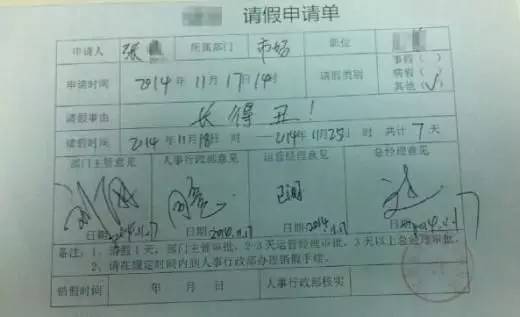 请假申请单
申请人 张 所属部门 市场 职位
申请时间 2014年11月17日14时 请假类别 事假( ) 病假( ) 其他(√)
请假事由 长得丑!
请假时间 2014年11月18日 时——2014年11月25日 时 共计7天
部门主管意见 人事行政部意见 运营经理意见 总经理意见
日期:2014.11.17 日期:2014.11.17 日期:2014.11.17 日期:2014.11.17
备注:1、请假1天,部门主管审批,2-3天运营经理审批,3天以上总经理审批。
2、请在规定时间内到人事行政部办理销假手续。
销假时间 年 月 日 人事行政部核实